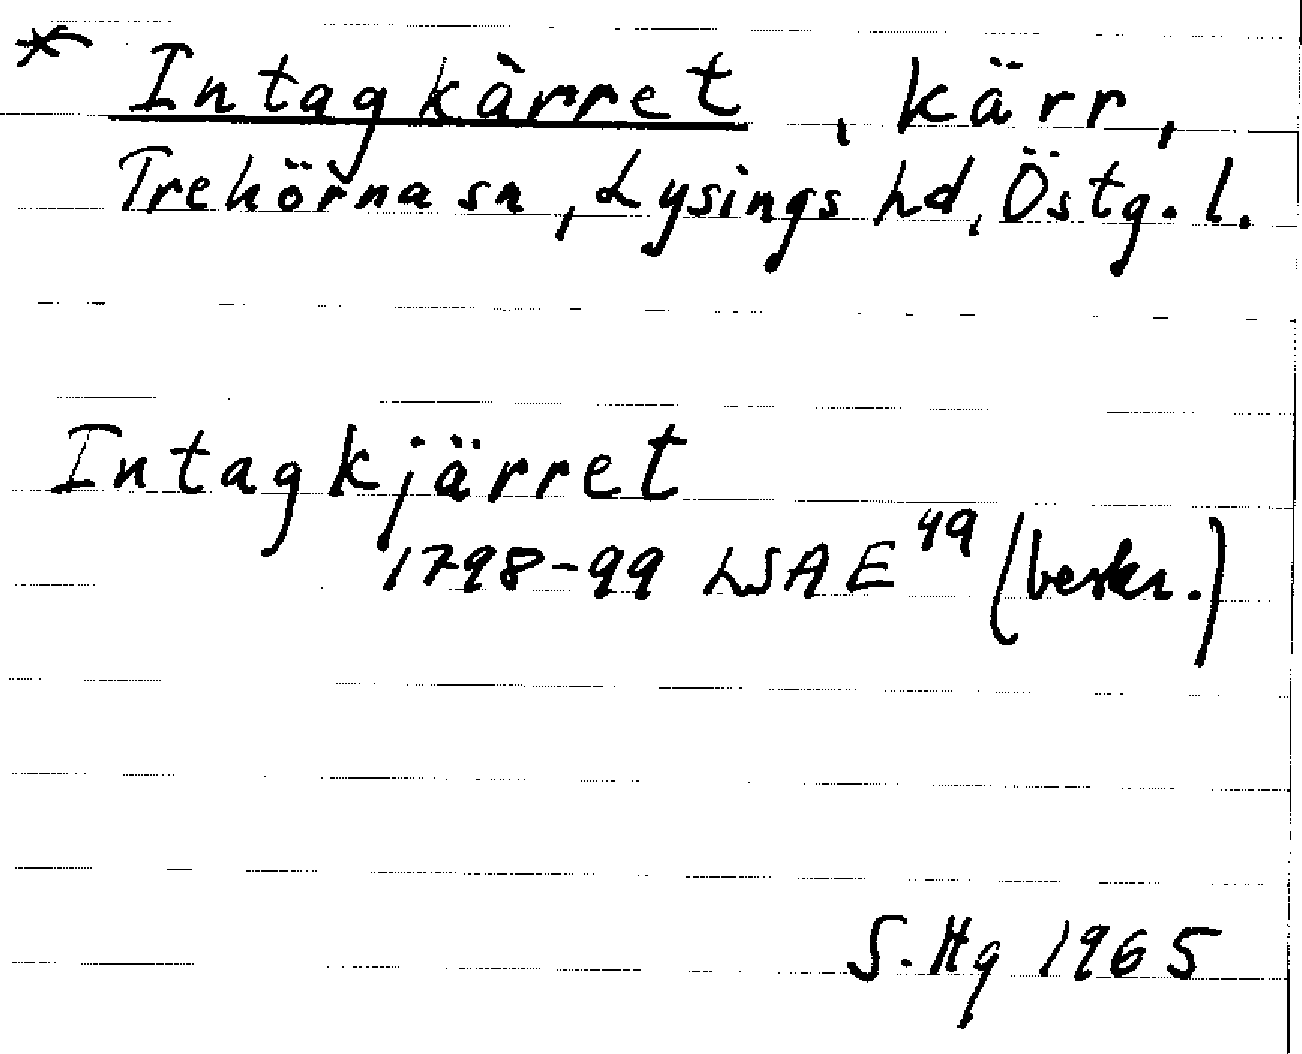 * Intagkärret, kärr,
Trehörna sn, Lysings hd, Östg. l.
Intagkjärret
1798-99 LSA E 49 (beskr.)
S. Hg 1965